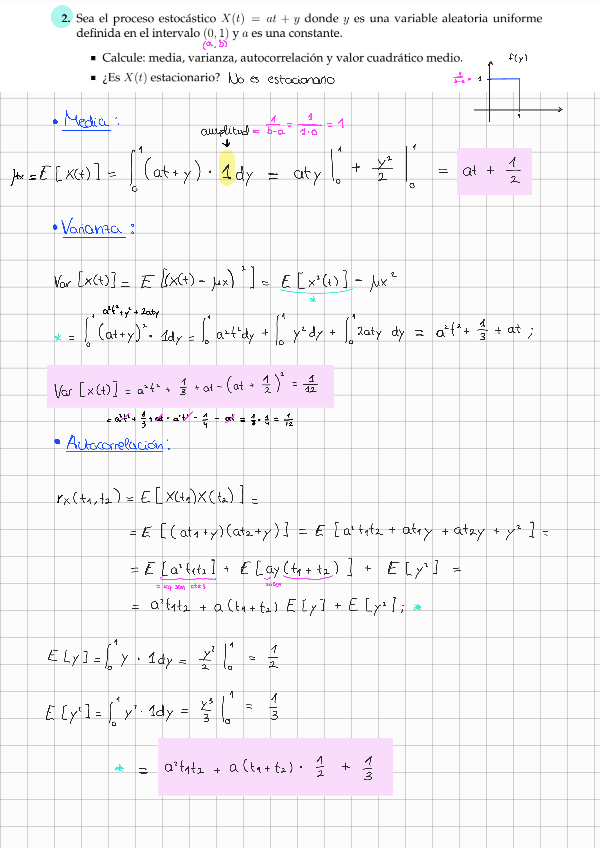 2. Sea el proceso estocástico X(t) = at + y donde y es una variable aleatoria uniforme
definida en el intervalo (0, 1) y a es una constante.
(a, b)
■ Calcule: media, varianza, autocorrelación y valor cuadrático medio.
■ ¿Es X(t) estacionario? No es estacionario
f(y)
1/b-a = 1
1
• Media:
amplitud = 1/b-a = 1/1-0 = 1
μx = E[X(t)] = ∫₀¹ (at+y) · 1dy = aty |₀¹ + y²/2 |₀¹ = at + 1/2
• Varianza:
Var [x(t)] = E[(x(t) - μx)²] = E[x²(t)] - μx²
*
a²t²+y²+2aty
* = ∫₀¹ (at+y)² · 1dy = ∫₀¹ a²t²dy + ∫₀¹ y²dy + ∫₀¹ 2aty dy = a²t² + 1/3 + at ;
Var [x(t)] = a²t² + 1/3 + at - (at + 1/2)² = 1/12
= a²t² + 1/3 + at - a²t² - 1/4 - at = 1/3 - 1/4 = 1/12
• Autocorrelación:
rx(t1,t2) = E[X(t1)X(t2)] =
= E[(at1+y)(at2+y)] = E[a²t1t2 + at1y + at2y + y²] =
= E[a²t1t2] + E[ay(t1+t2)] + E[y²] =
= a²t1t2 + a(t1+t2) E[y] + E[y²]; *
E[y] = ∫₀¹ y · 1dy = y²/2 |₀¹ = 1/2
E[y²] = ∫₀¹ y² · 1dy = y³/3 |₀¹ = 1/3
* = a²t1t2 + a(t1+t2) · 1/2 + 1/3